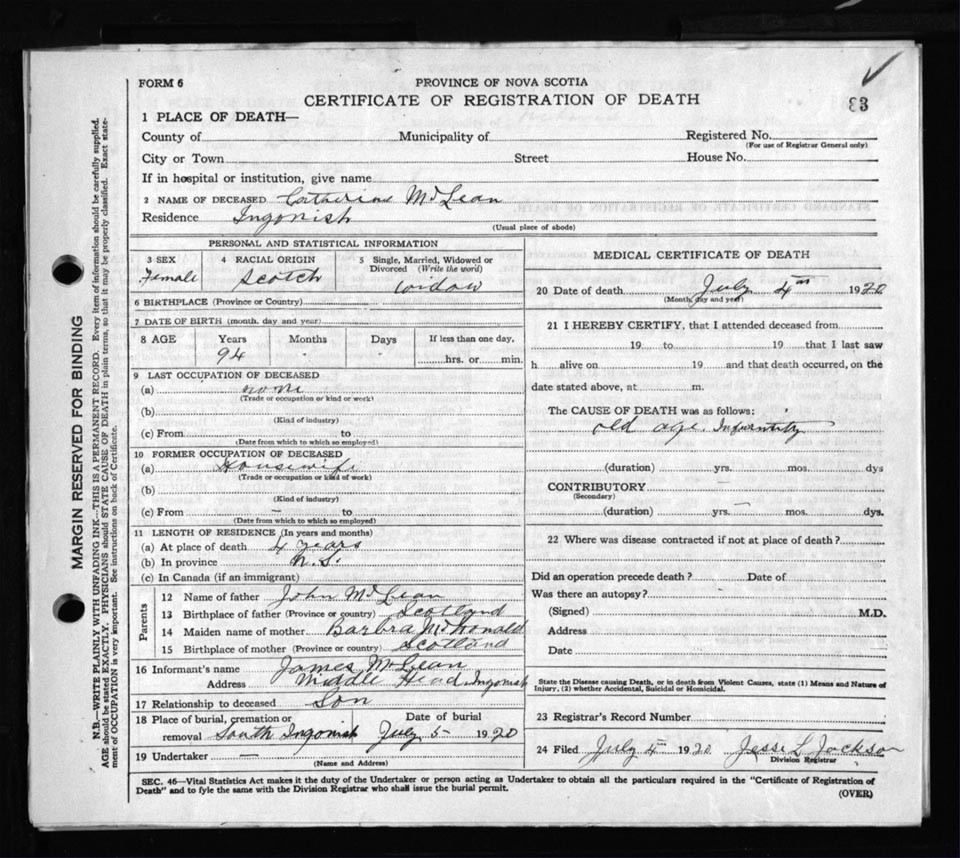 FORM 6
PROVINCE OF NOVA SCOTIA
CERTIFICATE OF REGISTRATION OF DEATH
83
1 PLACE OF DEATH—
County of Municipality of Registered No.
(For use of Registrar General only)
City or Town Street House No.
If in hospital or institution, give name
2 NAME OF DECEASED Catherine McLean
Residence Ingonish
(Usual place of abode)
PERSONAL AND STATISTICAL INFORMATION
3 SEX
Female
4 RACIAL ORIGIN
Scotch
5 Single, Married, Widowed or
Divorced (Write the word)
widow
6 BIRTHPLACE (Province or Country)
7 DATE OF BIRTH (month, day and year)
8 AGE Years Months Days If less than one day,
94 hrs. or min.
9 LAST OCCUPATION OF DECEASED
(a) none
(Trade or occupation or kind or work)
(b)
(Kind of industry)
(c) From to
(Date from which to which so employed)
10 FORMER OCCUPATION OF DECEASED
(a) Housewife
(Trade or occupation or kind of work)
(b)
(Kind of industry)
(c) From — to
(Date from which to which so employed)
11 LENGTH OF RESIDENCE (In years and months)
(a) At place of death 4 years
(b) In province N.S.
(c) In Canada (if an immigrant)
Parents
12 Name of father John McLean
13 Birthplace of father (Province or country) Scotland
14 Maiden name of mother Barbra McDonald
15 Birthplace of mother (Province or country) Scotland
16 Informant's name James McLean
Address Middle Head Ingonish
17 Relationship to deceased Son
18 Place of burial, cremation or Date of burial
removal South Ingonish July 5 1920
19 Undertaker —
(Name and Address)
MEDICAL CERTIFICATE OF DEATH
20 Date of death July 4th 1920
(Month, day and year)
21 I HEREBY CERTIFY, that I attended deceased from
19 to 19 that I last saw
h alive on 19 and that death occurred, on the
date stated above, at m.
The CAUSE OF DEATH was as follows:
old age. Infirmity
(duration) yrs. mos. dys
CONTRIBUTORY
(Secondary)
(duration) yrs. — mos. dys.
22 Where was disease contracted if not at place of death?
Did an operation precede death? Date of
Was there an autopsy?
(Signed) M.D.
Address
Date
State the Disease causing Death, or in death from Violent Causes, state (1) Means and Nature of
Injury, (2) whether Accidental, Suicidal or Homicidal.
23 Registrar's Record Number
24 Filed July 4th 1920 Jesse L Jackson
Division Registrar
SEC. 46—Vital Statistics Act makes it the duty of the Undertaker or person acting as Undertaker to obtain all the particulars required in the "Certificate of Registration of
Death" and to fyle the same with the Division Registrar who shall issue the burial permit.
(OVER)
MARGIN RESERVED FOR BINDING
N.B.—WRITE PLAINLY WITH UNFADING INK—THIS IS A PERMANENT RECORD. Every item of information should be carefully supplied.
AGE should be stated EXACTLY. PHYSICIANS should STATE CAUSE OF DEATH in plain terms, so that it may be properly classified. Exact state-
ment of OCCUPATION is very important. See instructions on back of Certificate.